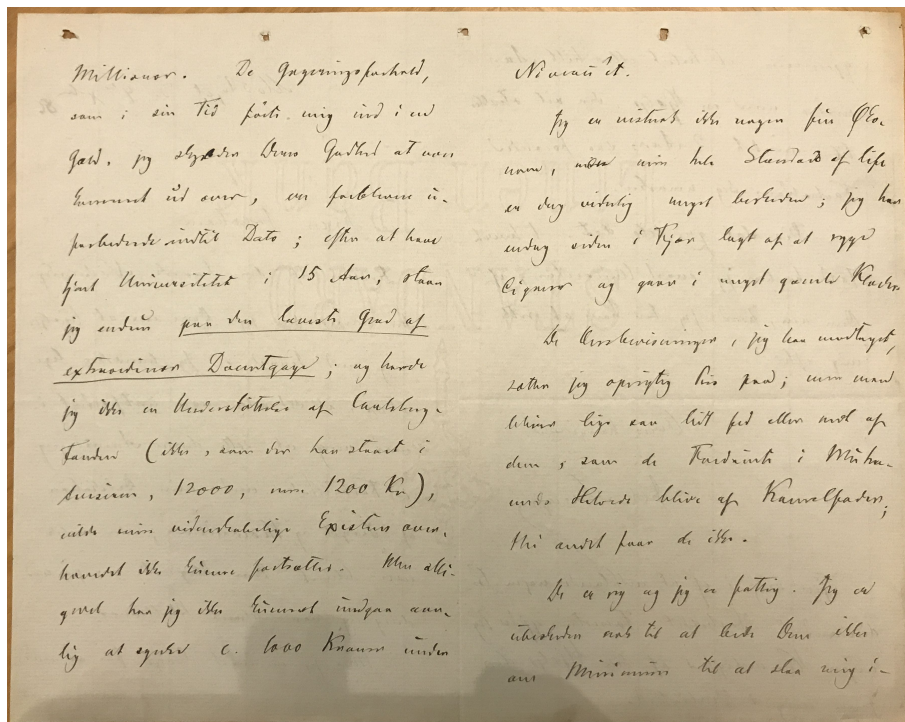 Millioner. De Gageringsforhold,
som i sin Tid førte mig ind i en
Gæld, jeg skylder Deres Godhed at være
kommet ud over, ere forblevne u-
forbedrede indtil Dato; efter at have
tjent Universitetet i 15 Aar, staar
jeg endnu paa den laveste Grad af
extraordinær Docentgage; og havde
jeg ikke en Understøttelse af Carlsberg-
Fondet (ikke, som der har staaet i
, 12000, men 1200 Kr),
vilde min videnskabelige Existens over-
hovedet ikke kunne fortsættes. Men alli-
gevel har jeg ikke kunnet undgaa aar-
lig at synke c. 1000 Kroner under
Niveau'et.
Jeg er vistnok ikke nogen fin Øko-
nom, men min hele Standard of life
er dog virkelig meget beskeden; jeg har
endog siden i Fjor lagt af at ryge
Cigarer og gaar i meget gamle Klæder.
De Æresbevisninger, jeg har modtaget,
sætter jeg oprigtig Pris paa; men man
bliver lige saa lidt fed eller mæt af
dem, som de Fordømte i Muha-
meds Helvede blive af Kamelfoder;
thi andet faar de ikke.
De er rig og jeg er fattig. Jeg er
ubeskeden nok til at bede Dem ikke
om Minimum til at slaa mig i-